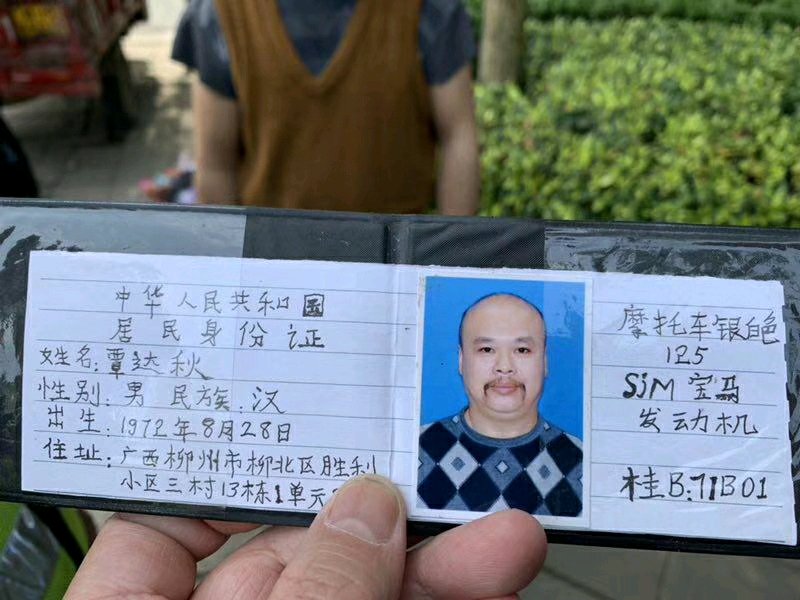 中华人民共和国
居民身份证
姓名:覃达秋
性别:男 民族:汉
出生:1972年8月28日
住址:广西柳州市柳北区胜利
小区三村13栋1单元
摩托车银色
125
SJM 宝马
发动机
桂B:71B01